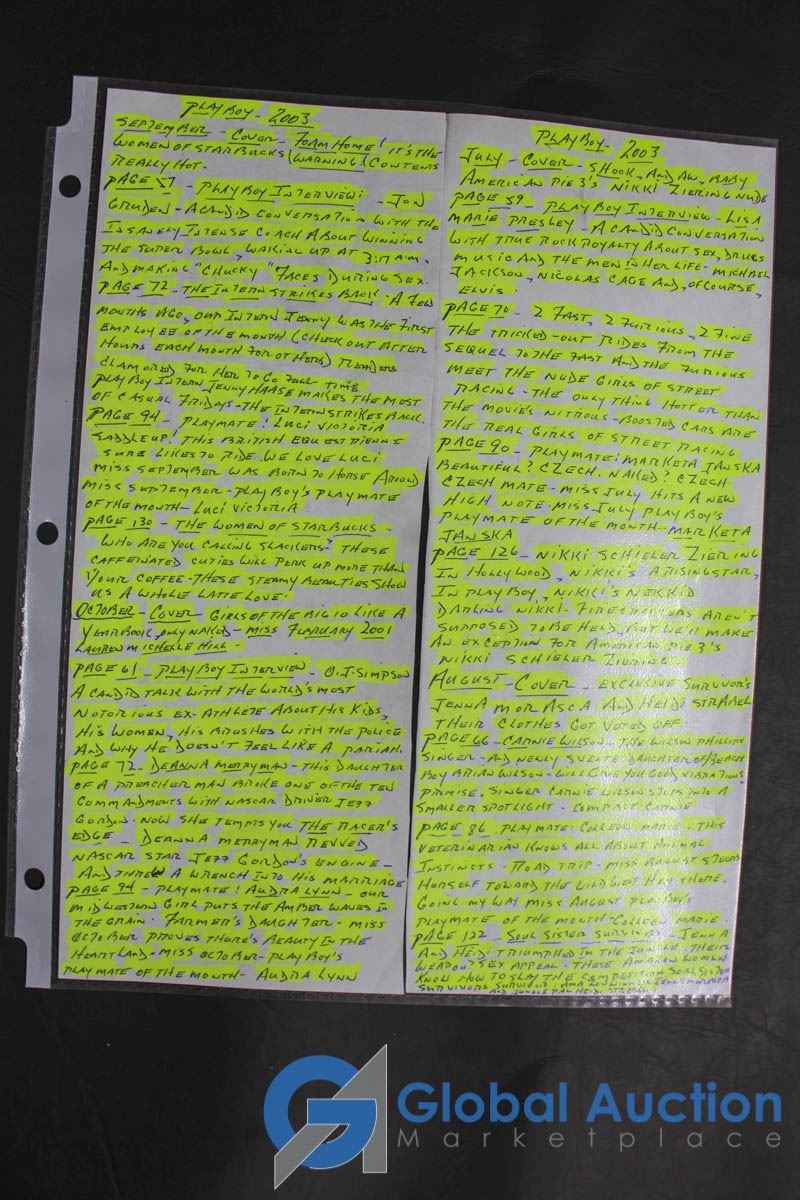 PLAYBOY - 2003
SEPTEMBER - COVER - FOAM HOME! IT'S THE
WOMEN OF STARBUCKS (WARNING! CONTENTS
REALLY HOT.
PAGE 57 - PLAYBOY INTERVIEW: JON
GRUDEN - A CANDID CONVERSATION WITH THE
INSANELY INTENSE COACH ABOUT WINNING
THE SUPER BOWL, WAKING UP AT 3:17 A.M.
AND MAKING "CHUCKY" FACES DURING SEX.
PAGE 72 - THE INTERN STRIKES BACK - A FEW
MONTHS AGO, OUR INTERN JENNY WAS THE FIRST
EMPLOYEE OF THE MONTH (CHECK OUT AFTER
HOURS EACH MONTH FOR OTHERS) READERS
CLAMORED FOR HER TO GO FULL TIME
PLAYBOY INTERN JENNY HAASE MAKES THE MOST
OF CASUAL FRIDAYS - THE INTERN STRIKES BACK.
PAGE 94 - PLAYMATE! LUCI VICTORIA
SADDLE UP! THIS BRITISH EQUESTRIENNE
SURE LIKES TO RIDE. WE LOVE LUCI
MISS SEPTEMBER WAS BORN TO HORSE AROUND
MISS SEPTEMBER - PLAYBOY'S PLAYMATE
OF THE MONTH - LUCI VICTORIA
PAGE 130 - THE WOMEN OF STARBUCKS -
WHO ARE YOU CALLING SLACKERS? THESE
CAFFEINATED CUTIES WILL PERK UP MORE THAN
YOUR COFFEE - THESE STEAMY BEAUTIES SHOW
US A WHOLE LATTE LOVE.
OCTOBER - COVER - GIRLS OF THE BIG 10 LIKE A
YEARBOOK, ONLY NAKED - MISS FEBRUARY 2001
LAUREN MICHELLE HILL -
PAGE 61 - PLAYBOY INTERVIEW - O.J. SIMPSON
A CANDID TALK WITH THE WORLD'S MOST
NOTORIOUS EX-ATHLETE ABOUT HIS KIDS,
HIS WOMEN, HIS BRUSHES WITH THE POLICE
AND WHY HE DOESN'T FEEL LIKE A PARIAH.
PAGE 72 - DEANNA MERRYMAN - THIS DAUGHTER
OF A PREACHER MAN BROKE ONE OF THE TEN
COMMANDMENTS WITH NASCAR DRIVER JEFF
GORDON. NOW SHE TEMPTS YOU THE RACER'S
EDGE - DEANNA MERRYMAN REVVED
NASCAR STAR JEFF GORDON'S ENGINE -
AND THREW A WRENCH INTO HIS MARRIAGE
PAGE 94 - PLAYMATE! AUDRA LYNN - OUR
MIDWESTERN GIRL PUTS THE AMBER WAVES IN
THE GRAIN. FARMER'S DAUGHTER - MISS
OCTOBER PROVES THERE'S BEAUTY IN THE
HEARTLAND - MISS OCTOBER - PLAYBOY'S
PLAYMATE OF THE MONTH - AUDRA LYNN
PLAYBOY - 2003
JULY - COVER - SHOOK, AND AW, BABY
AMERICAN PIE 3'S NIKKI ZIERING NUDE
PAGE 59 - PLAYBOY INTERVIEW - LISA
MARIE PRESLEY - A CANDID CONVERSATION
WITH TRUE ROCK ROYALTY ABOUT SEX, DRUGS
MUSIC AND THE MEN IN HER LIFE - MICHAEL
JACKSON, NICOLAS CAGE AND, OF COURSE,
ELVIS
PAGE 70 - 2 FAST, 2 FURIOUS, 2 FINE
THE TRICKED-OUT RIDES FROM THE
SEQUEL TO THE FAST AND THE FURIOUS
MEET THE NUDE GIRLS OF STREET
RACING - THE ONLY THING HOTTER THAN
THE MOVIE'S NITROUS-BOOSTED CARS ARE
THE REAL GIRLS OF STREET RACING
PAGE 90 - PLAYMATE: MARKETA JANSKA
BEAUTIFUL? CZECH. NAKED? CZECH.
CZECH MATE - MISS JULY HITS A NEW
HIGH NOTE - MISS JULY PLAYBOY'S
PLAYMATE OF THE MONTH - MARKETA
JANSKA
PAGE 126 - NIKKI SCHIELER ZIERING
IN HOLLYWOOD, NIKKI'S A RISING STAR,
IN PLAYBOY, NIKKI'S NEKKID
DARLING NIKKI - FIRECRACKERS AREN'T
SUPPOSED TO BE HELD, BUT WE'LL MAKE
AN EXCEPTION FOR AMERICAN PIE 3'S
NIKKI SCHIELER ZIERING
AUGUST - COVER - EXCLUSIVE SURVIVOR'S
JENNA MORASCA AND HEIDI STRABEL
THEIR CLOTHES GOT VOTED OFF
PAGE 66 - CARNIE WILSON - THE WILSON PHILLIPS
SINGER - AND NEWLY SVELTE DAUGHTER OF BEACH
BOY BRIAN WILSON - WILL GIVE YOU GOOD VIBRATIONS
PROMISE. SINGER CARNIE WILSON STEPS INTO A
SMALLER SPOTLIGHT - COMPACT CARNIE
PAGE 86 - PLAYMATE: COLLEEN MARIE - THIS
VETERINARIAN KNOWS ALL ABOUT ANIMAL
INSTINCTS - ROAD TRIP - MISS AUGUST STEERS
HERSELF TOWARD THE WILD WEST HEY, THERE.
GOING MY WAY MISS AUGUST PLAYBOY'S
PLAYMATE OF THE MONTH - COLLEEN MARIE
PAGE 122 - SOUL SISTER SURVIVORS - JENNA
AND HEIDI TRIUMPHED IN THE JUNGLE. THEIR
WEAPON? SEX APPEAL - THESE AMAZON WOMEN
KNOW HOW TO SLAY THE COMPETITION SOUL SISTER
SURVIVORS SURVIVOR: AMAZON WINNER JENNA MORASCA
AND JUNGLE PAL HEIDI STROBEL
Global Auction
Marketplace